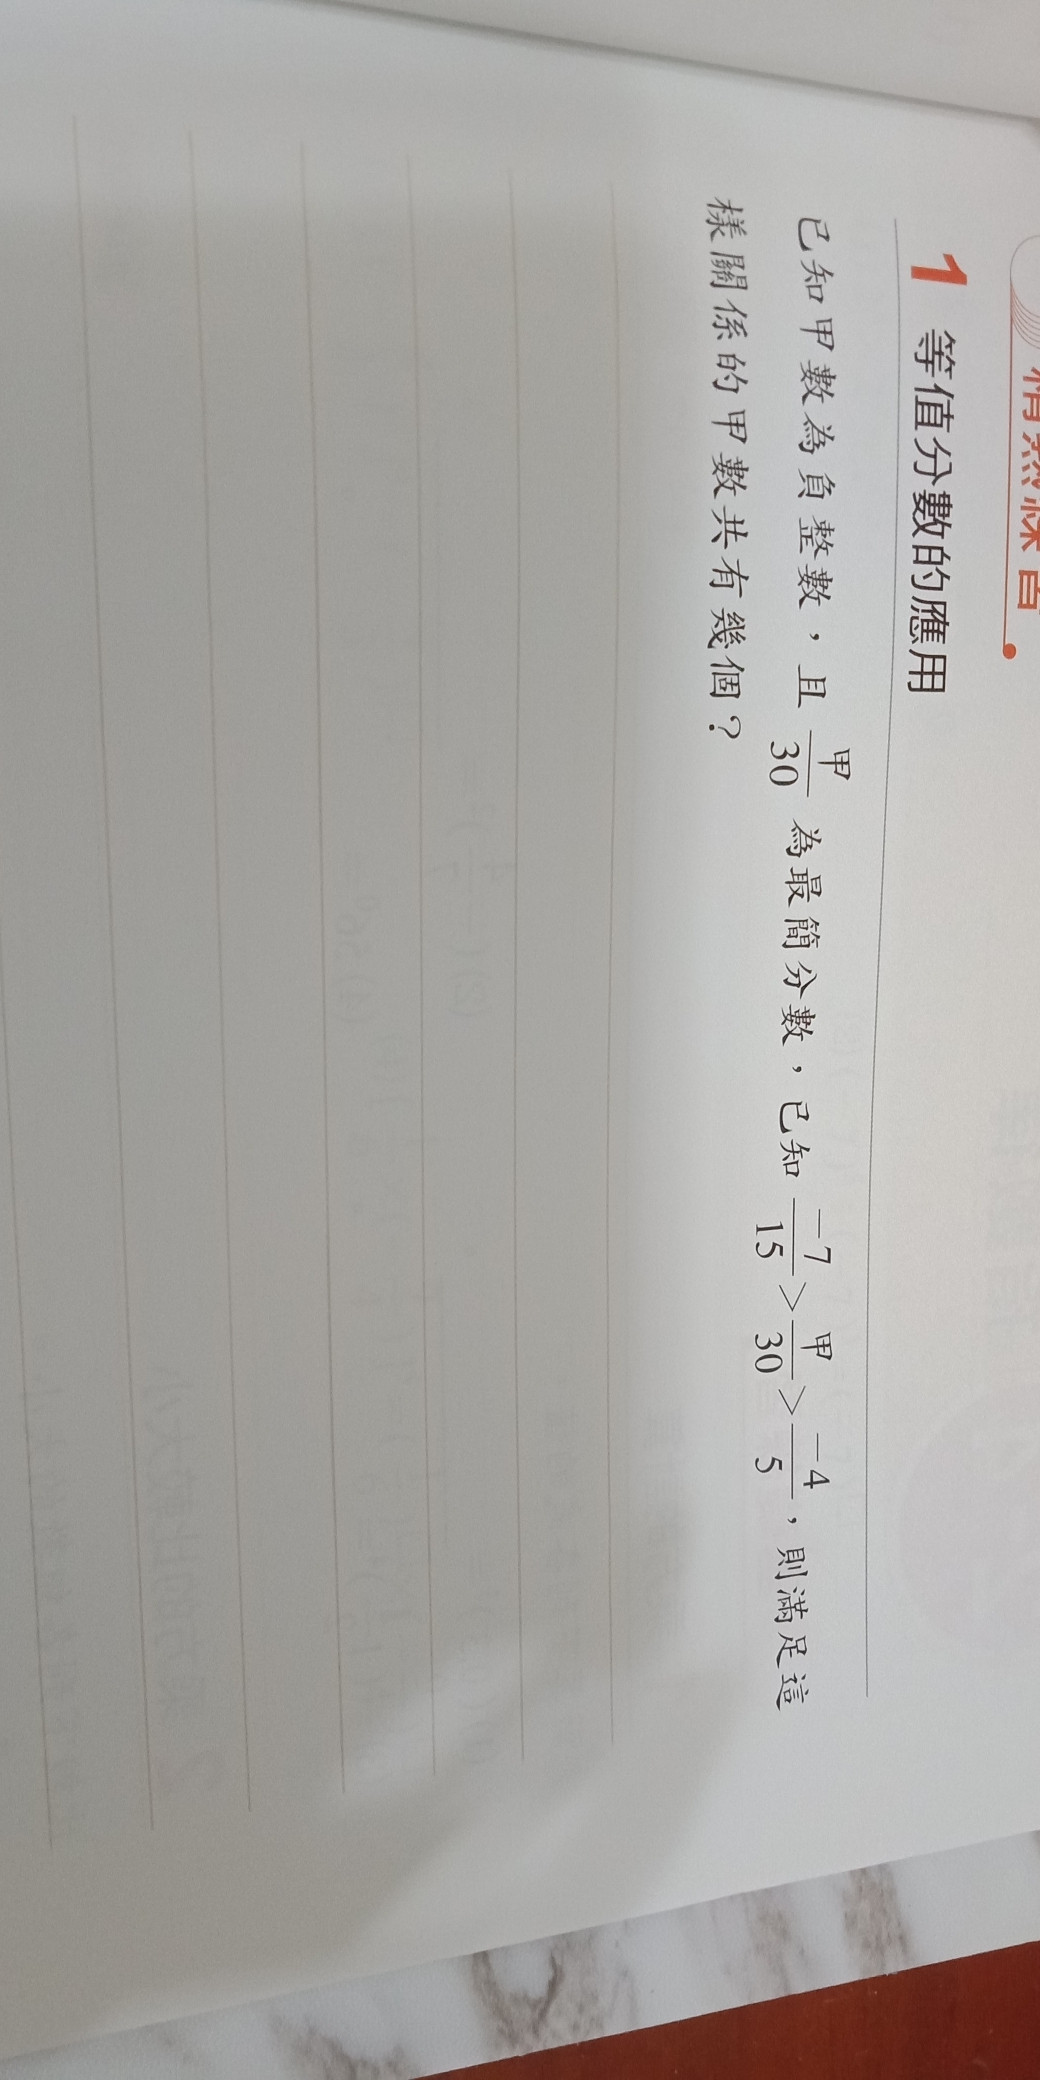 精熟練習
1 等值分數的應用
已知甲數為負整數，且 甲/30 為最簡分數，已知 -7/15 > 甲/30 > -4/5，則滿足這
樣關係的甲數共有幾個？